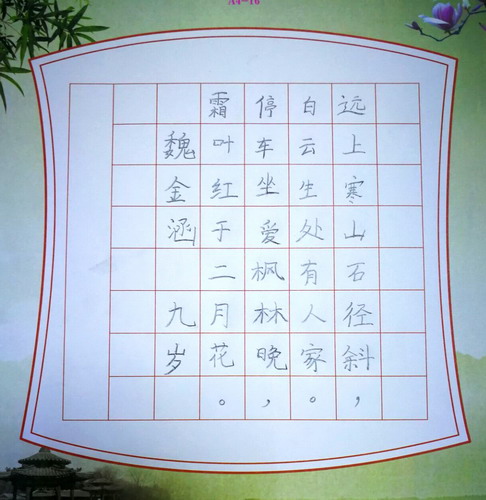 A4-16
远上寒山石径斜，
白云生处有人家。
停车坐爱枫林晚，
霜叶红于二月花。
魏金涵 九岁